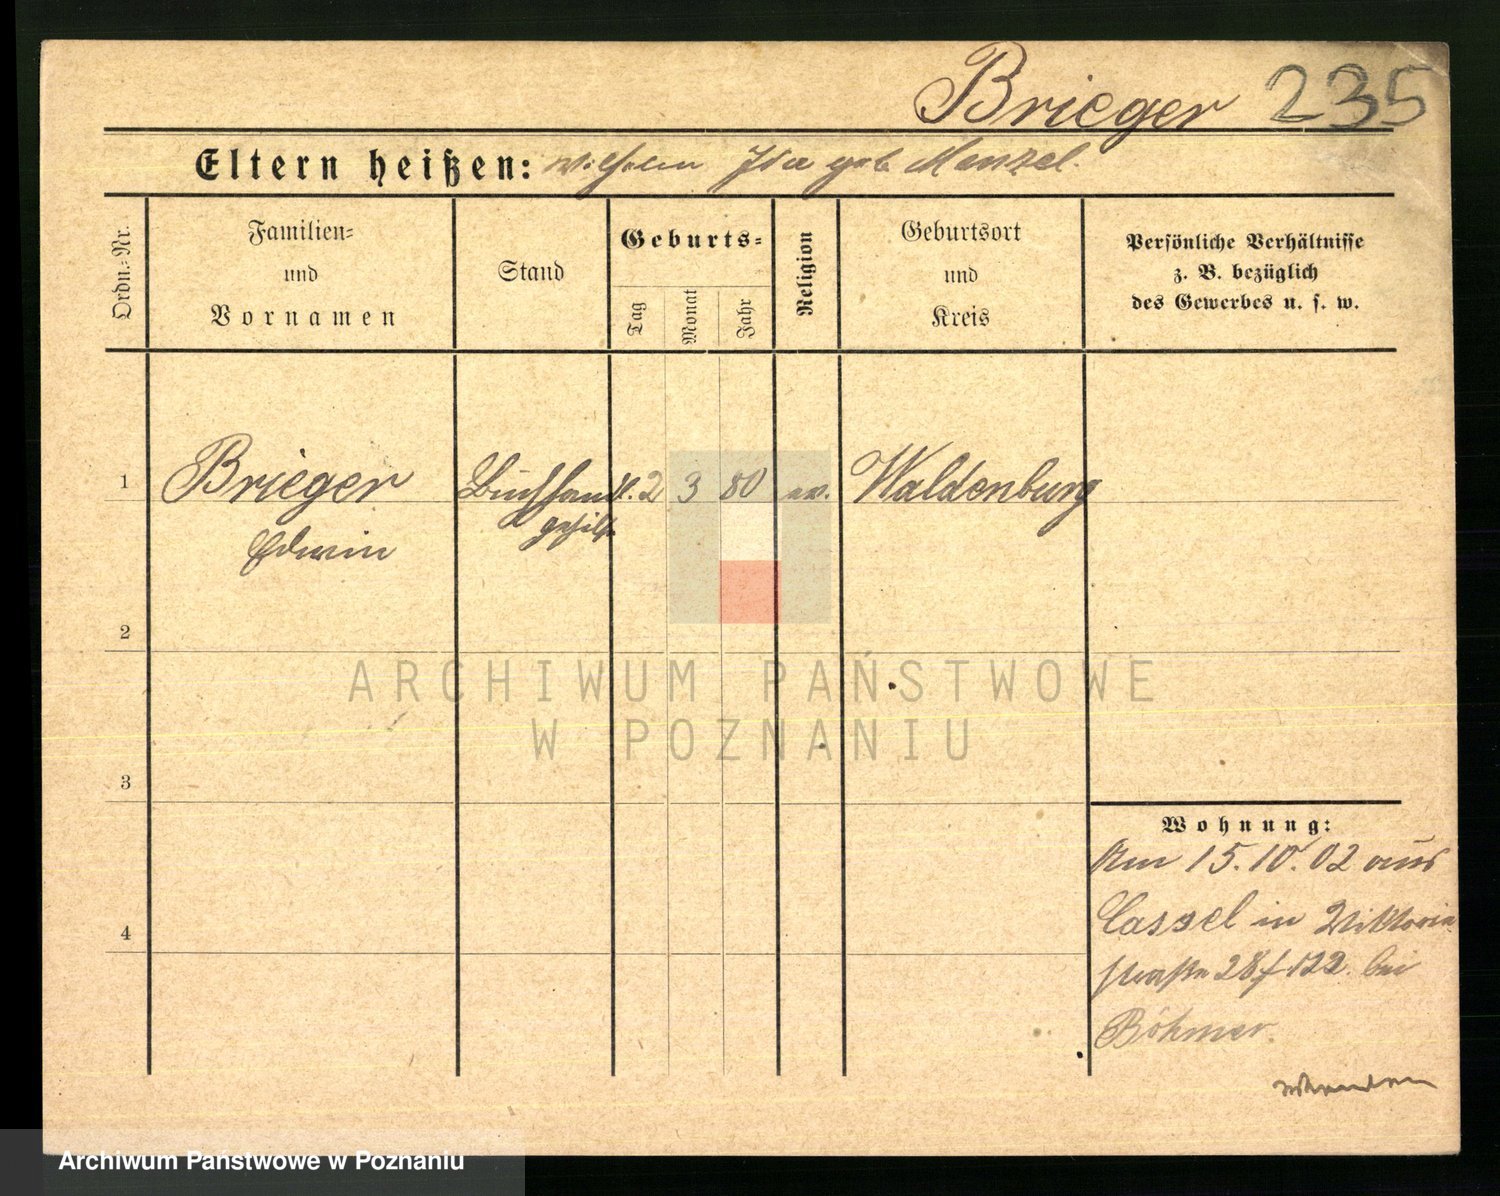 Brieger 235
Eltern heißen: Wilhelm Ida geb. Menzel.
Ordn.-Nr.
Familien-
und
Vornamen
Stand
Geburts-
Tag
Monat
Jahr
Religion
Geburtsort
und
Kreis
Persönliche Verhältnisse
z. B. bezüglich
des Gewerbes u. s. w.
1 Brieger Buchhandl. 2 3 80 ev. Waldenburg
Edwin gehilfe
2
3
4
Wohnung:
Am 15.10.02 aus
Cassel in Viktoria
straße 28 122. bei
Böhmer.
ARCHIWUM PAŃSTWOWE
W POZNANIU
Archiwum Państwowe w Poznaniu